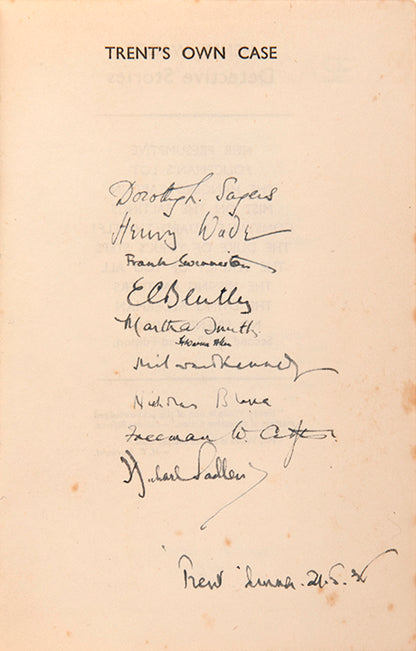 TRENT'S OWN CASE
Dorothy L. Sayers
Henry Wade
Frank Swinnerton
E C Bentley
Martha Smith
Milward Kennedy
Nicholas Blake
Freeman W. Crofts
Michael Sadleir
'Trent' Dinner. 21.5.36